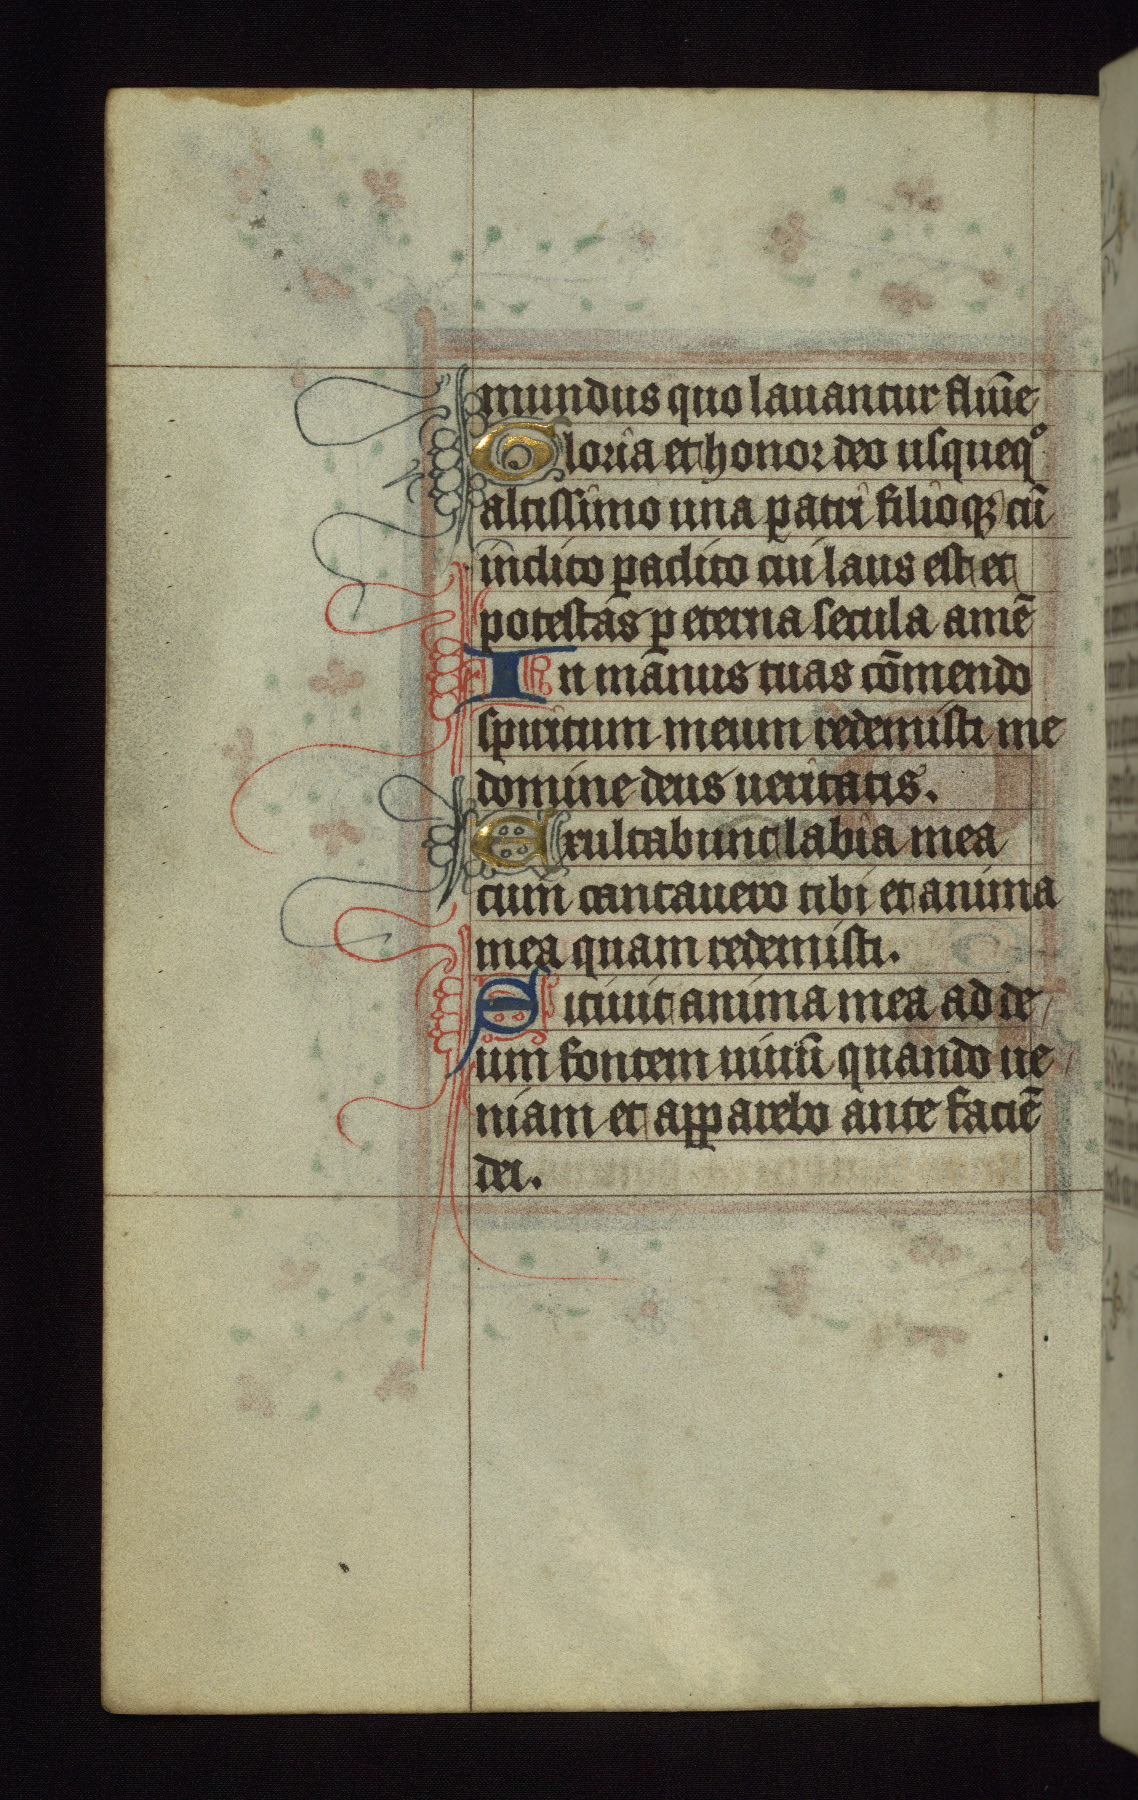 mundus quo lauantur flum̄e
Gloria et honor deo usqueqº
altissimo una patri filioqꝫ cū
inclito paclito cui laus est et
potestas ꝑ eterna secula amē
In manus tuas cōmendo
spiritum meum redemisti me
domine deus ueritatis.
Exultabunt labia mea
cum cantauero tibi et anima
mea quam redemisti.
Sitiuit anima mea ad de
um fontem uiuū quando ue
niam et apparebo ante faciē
dei.